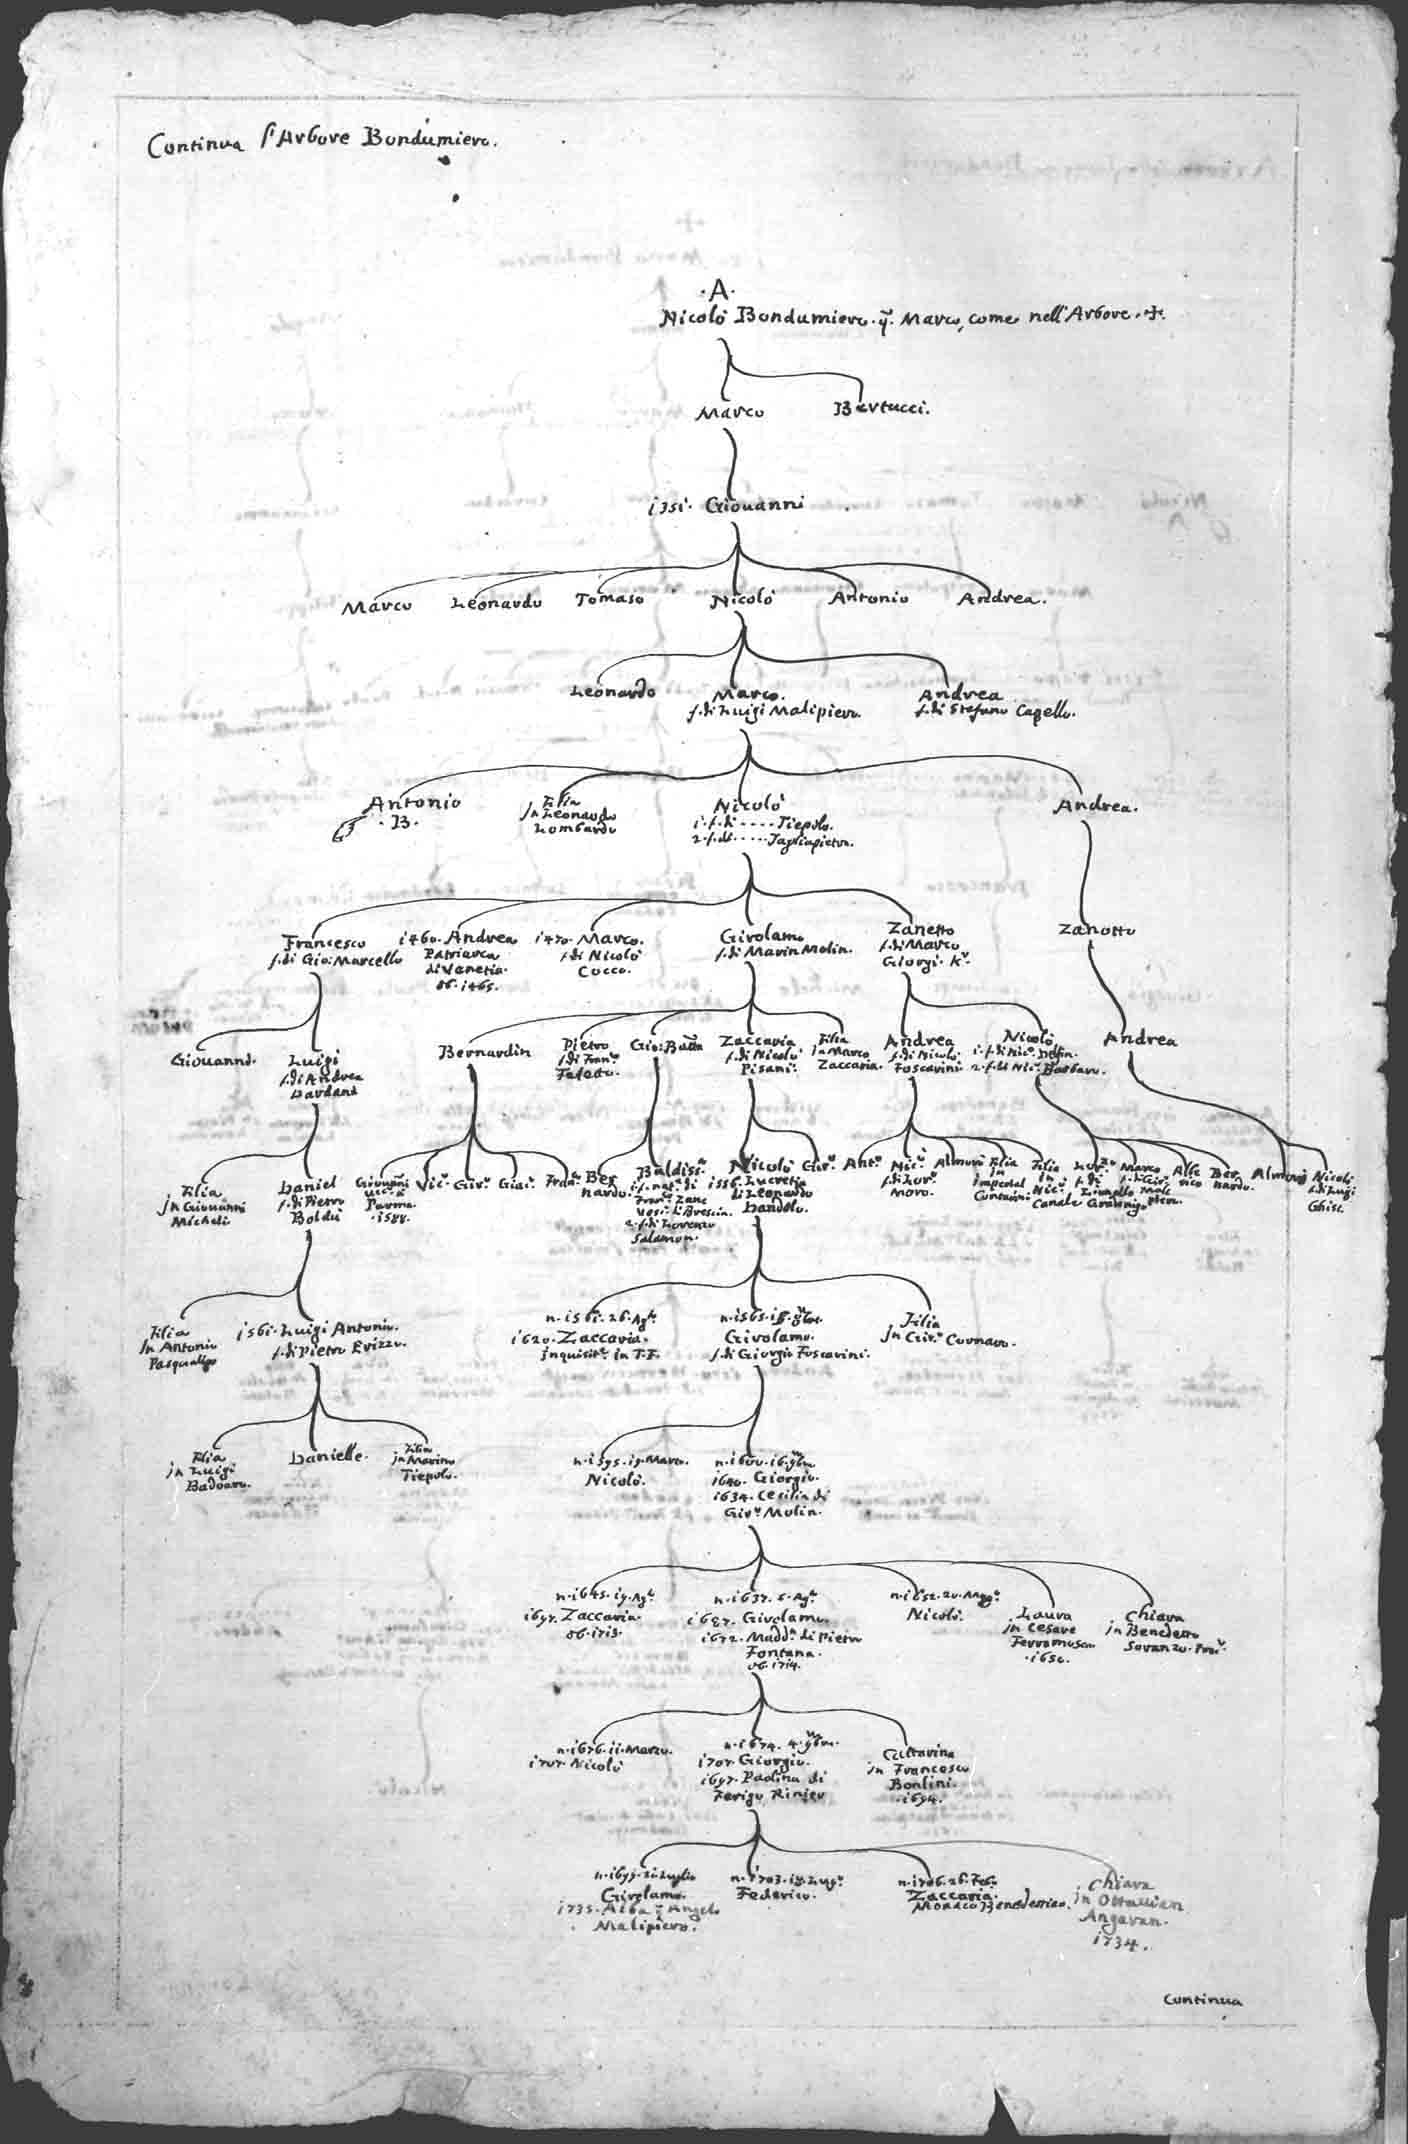 Continua l'Arbore Bondumiero.
·A·
Nicolò Bondumiero. q. Marco, come nell'Arbore.
Marco
Bertucci.
1351. Giouanni
Marco
Leonardo
Tomaso
Nicolò
Antonio
Andrea.
Leonardo
Marco.
f. di Luigi Malipiero.
Andrea
f. di Stefano Capello.
Antonio
·B·
Filia
in Leonardo
Lombardo
Nicolò
1. f. di ····· Tiepolo.
2. f. di ····· Tagliapietra.
Andrea.
Francesco
f. di Gio: Marcello
1460. Andrea
Patriarca
di Venetia.
ob. 1465.
1470. Marco.
f. di Nicolò
Cocco.
Girolamo
f. di Marin Molin.
Zanetto
f. di Marco
Giorgi. Kr.
Zanotto
Giouanni.
Luigi
f. di Andrea
Bernardin
Pietro
f. di Franco
Gio: Batta
Zaccaria
f. di Nicolò
Pisani.
Filia
in Marco
Zaccaria.
Andrea
f. di Nicolò
Foscarini
Nicolò
1. f. di Nic. Delfin.
2. f. di Nic. Barbaro.
Andrea
Filia
in Giouanni
Micheli
Daniel
f. di Pietro
Boldù
Giouanni
Parma
1588.
Vic.
Gir.
Giai.
Fran.
Ber
nardo.
Baldiss.
Fran. Zane
2. f. di Lorenzo
Salamon.
Nicolò
1556. Lucretia
di Leonardo
Dandolo.
Gir.
Ant.
Nic.
f. di Lor.
Moro.
Almorò
Filia
in
Imperial
Contarini
Filia
in
Nic.
Canale
Lor.
f. di
Gradenigo
Marco
f. di Gir.
Mali
piero
Albe
rico
Ber
nardo.
Almorò
Nicolò
f. di Luigi
Ghisi.
Filia
in Antonio
Pasqualigo
1561. Luigi Antonio.
f. di Pietro Erizzo.
n. 1561. 26. Ag.
1620. Zaccaria.
inquisit. in T. F.
n. 1565.
Girolamo.
f. di Giorgio Foscarini.
Filia
in Gir. Cornaro.
Filia
in Luigi
Badoaro.
Danielle.
Filia
in Marino
Tiepolo.
n. 1595. 19. Marzo.
Nicolò.
n. 1600. 16. 9bre
1640. Giorgio.
1634. Cecilia di
Gir. Molin.
n. 1645. 19. Ag.
1697. Zaccaria.
ob. 1713.
n. 1637. 6. Ag.
1687. Girolamo.
1672. Madd. di Pietro
Fontana.
ob. 1714.
n. 1652. 20. Magg.
Nicolò.
Laura
in Cesare
Ferramosca
·1650.
Chiara
in Benedetto
Soranzo.
n. 1676. 11. Marzo.
1707. Nicolò
n. 1674. 4. 9bre.
1707. Giorgio.
1697. Paolina di
Ferigo Rinier
Cattarina
in Francesco
Bonlini.
·1694.
n. 1699. 21. Luglio
Girolamo.
1735. Alba q. Angelo
Malipiero.
n. 1703. 19. Lug.
Federico.
n. 1706. 26. Feb.
Zaccaria.
Monaco Benedettino.
Chiara
in Ottauian
Angaran.
1734.
Continua